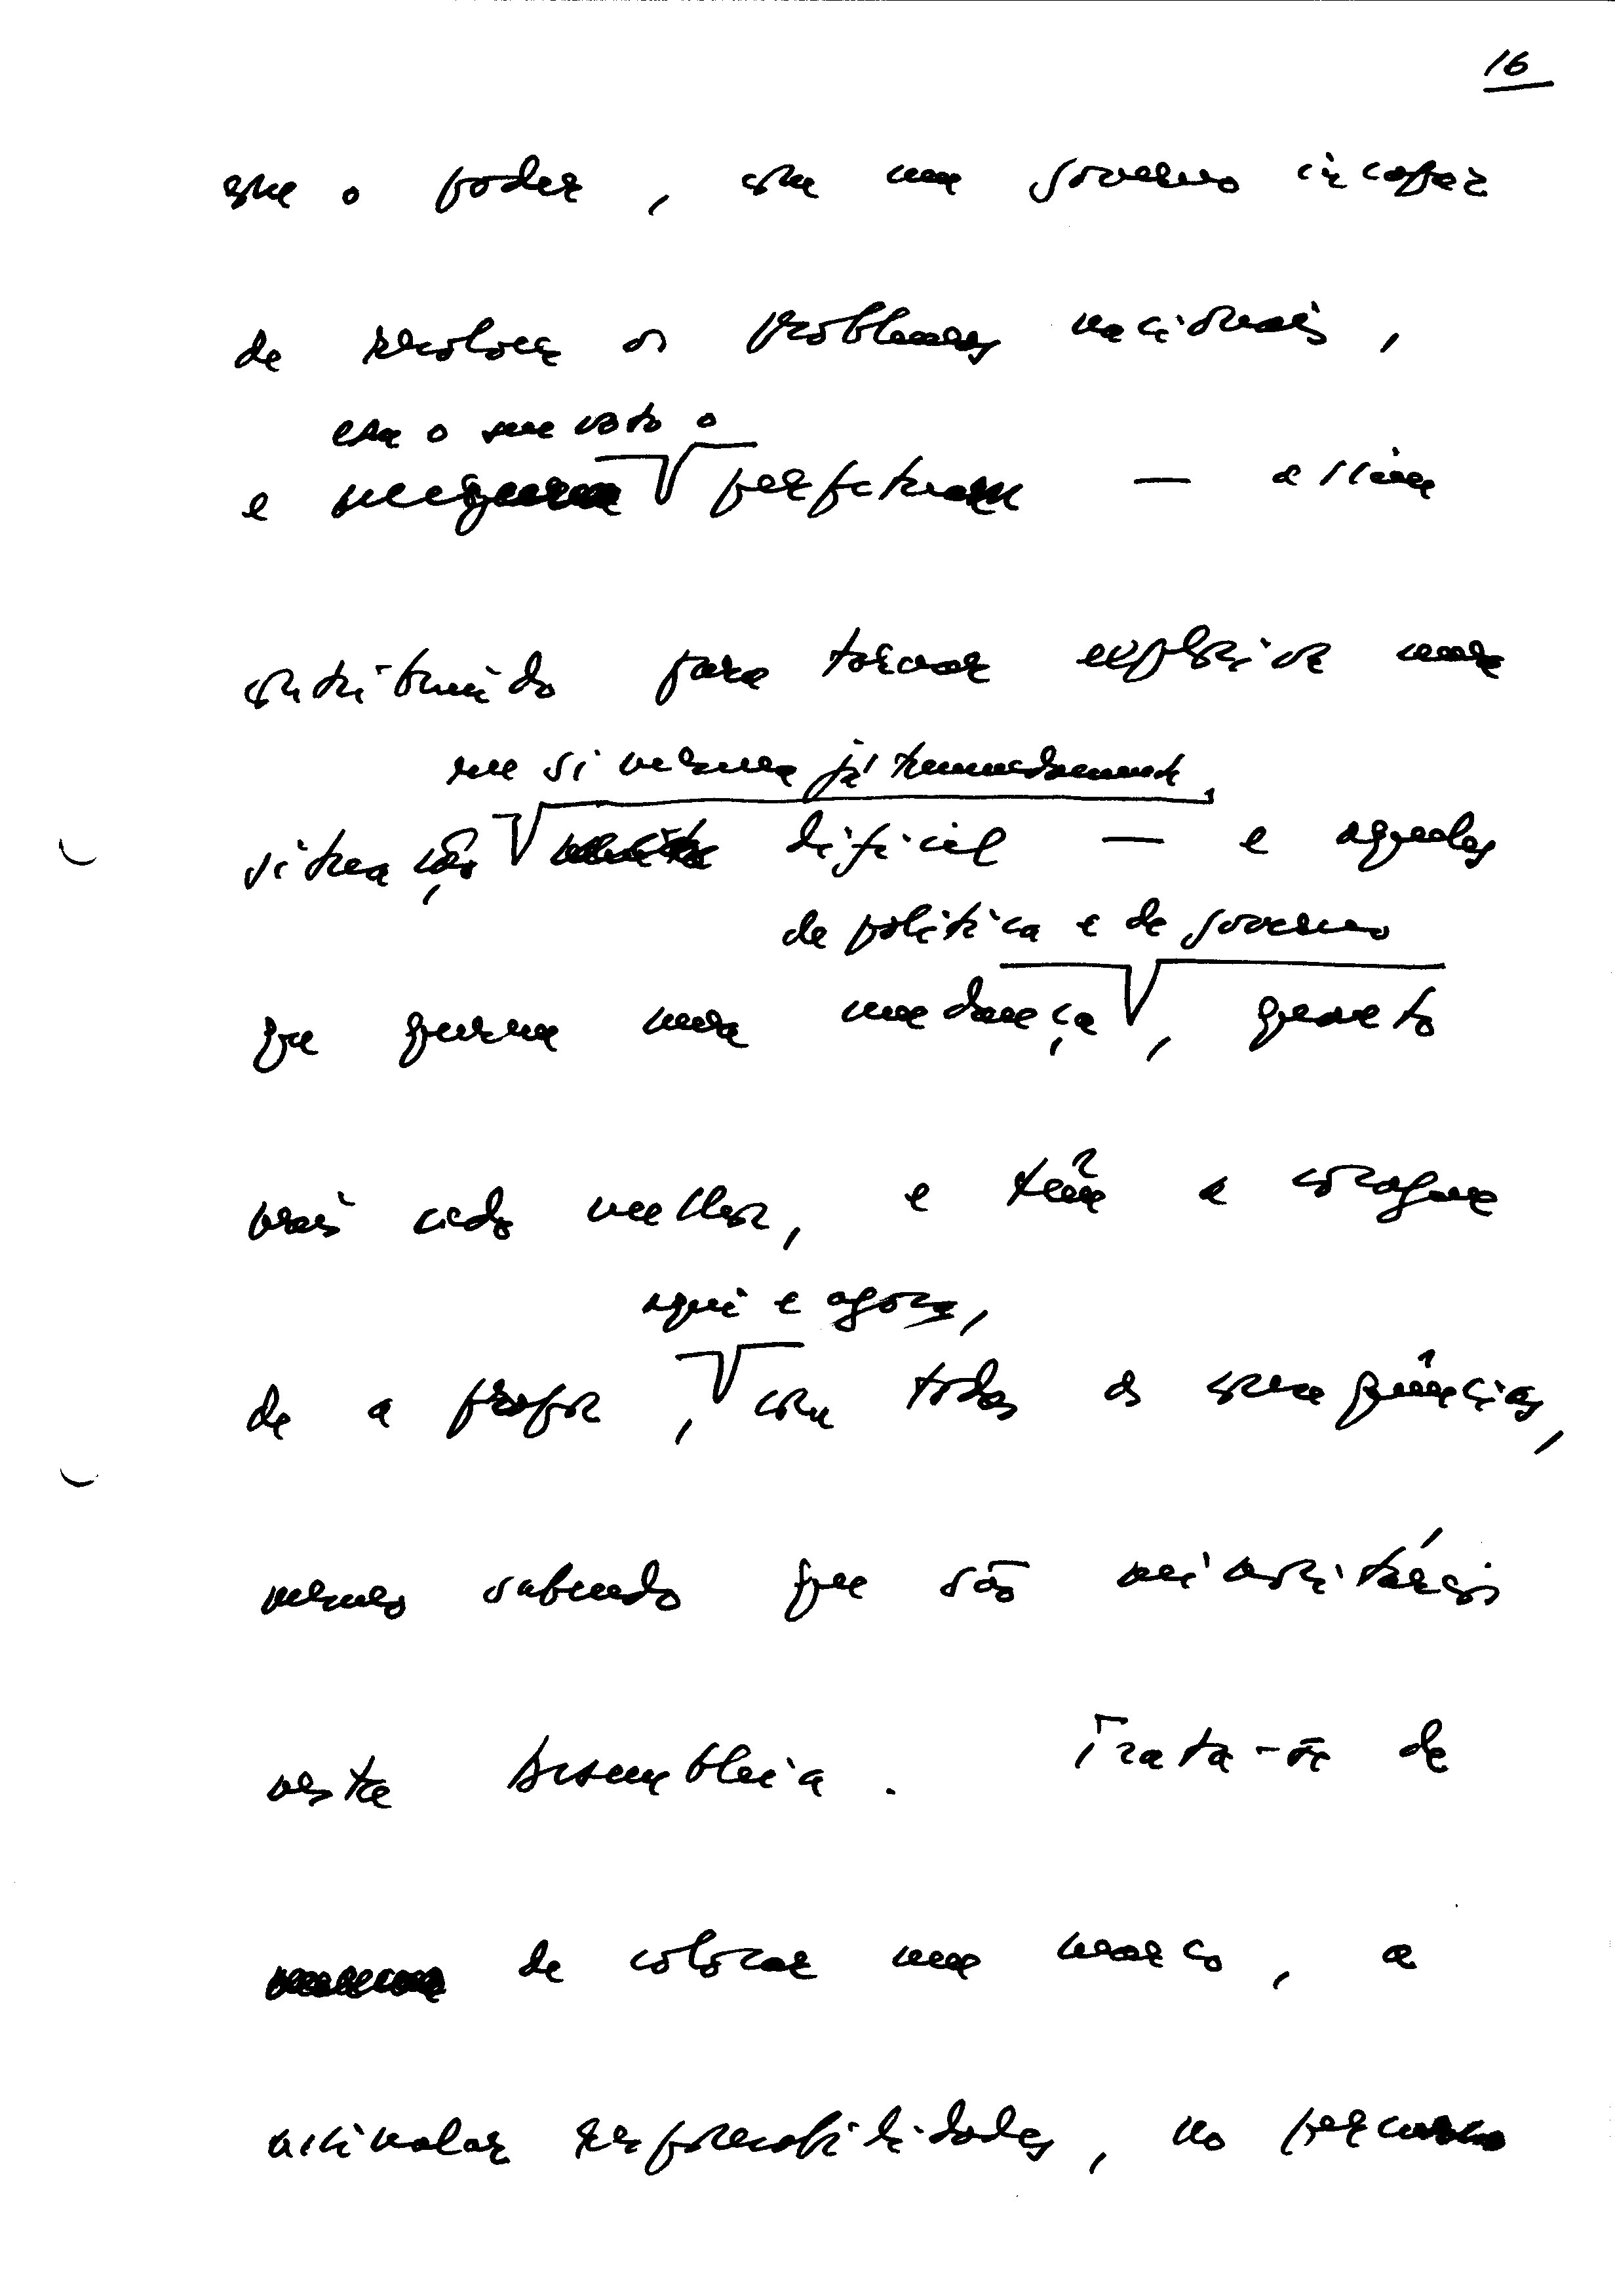 16
que o poder, com um governo incapaz
de resolver os problemas nacionais,
com o seu voto o
e perpetuam — assim
contribuindo para tornar explosiva uma
em si mesma já tremendamente
situação difícil — e aqueles
de política e de governo
que querem uma mudança, quanto
mais cedo melhor, e têm a coragem
aqui e agora,
de a propor, com todas as consequências,
mesmo sabendo que são minoritários
nesta Assembleia. Trata-se de
de colocar um marco, a
assinalar responsabilidades, no percurso